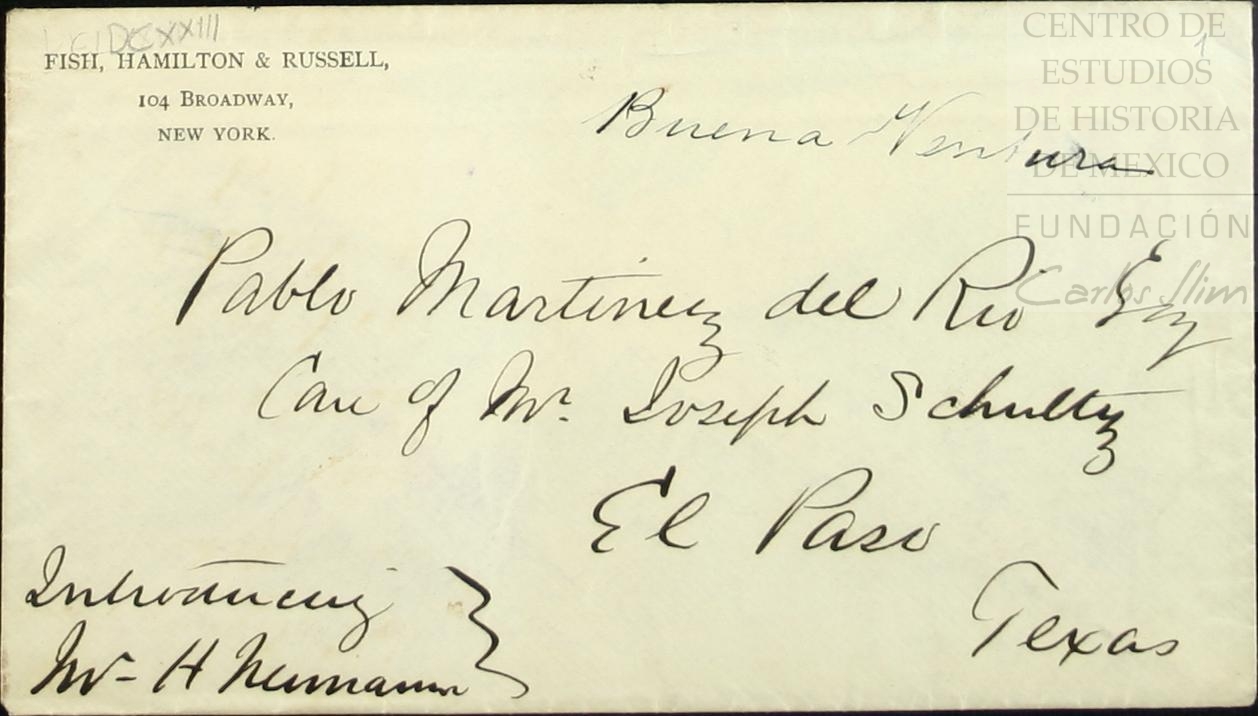 DCXXIII
FISH, HAMILTON & RUSSELL,
104 BROADWAY,
NEW YORK.
1
CENTRO DE
ESTUDIOS
DE HISTORIA
DE MEXICO
FUNDACIÓN
Carlos Slim
Buena Ventura
Pablo Martinez del Rio Esq
Care of Mr. Joseph Schultz
El Paso
Texas
Introducing
Mr - H Neumann